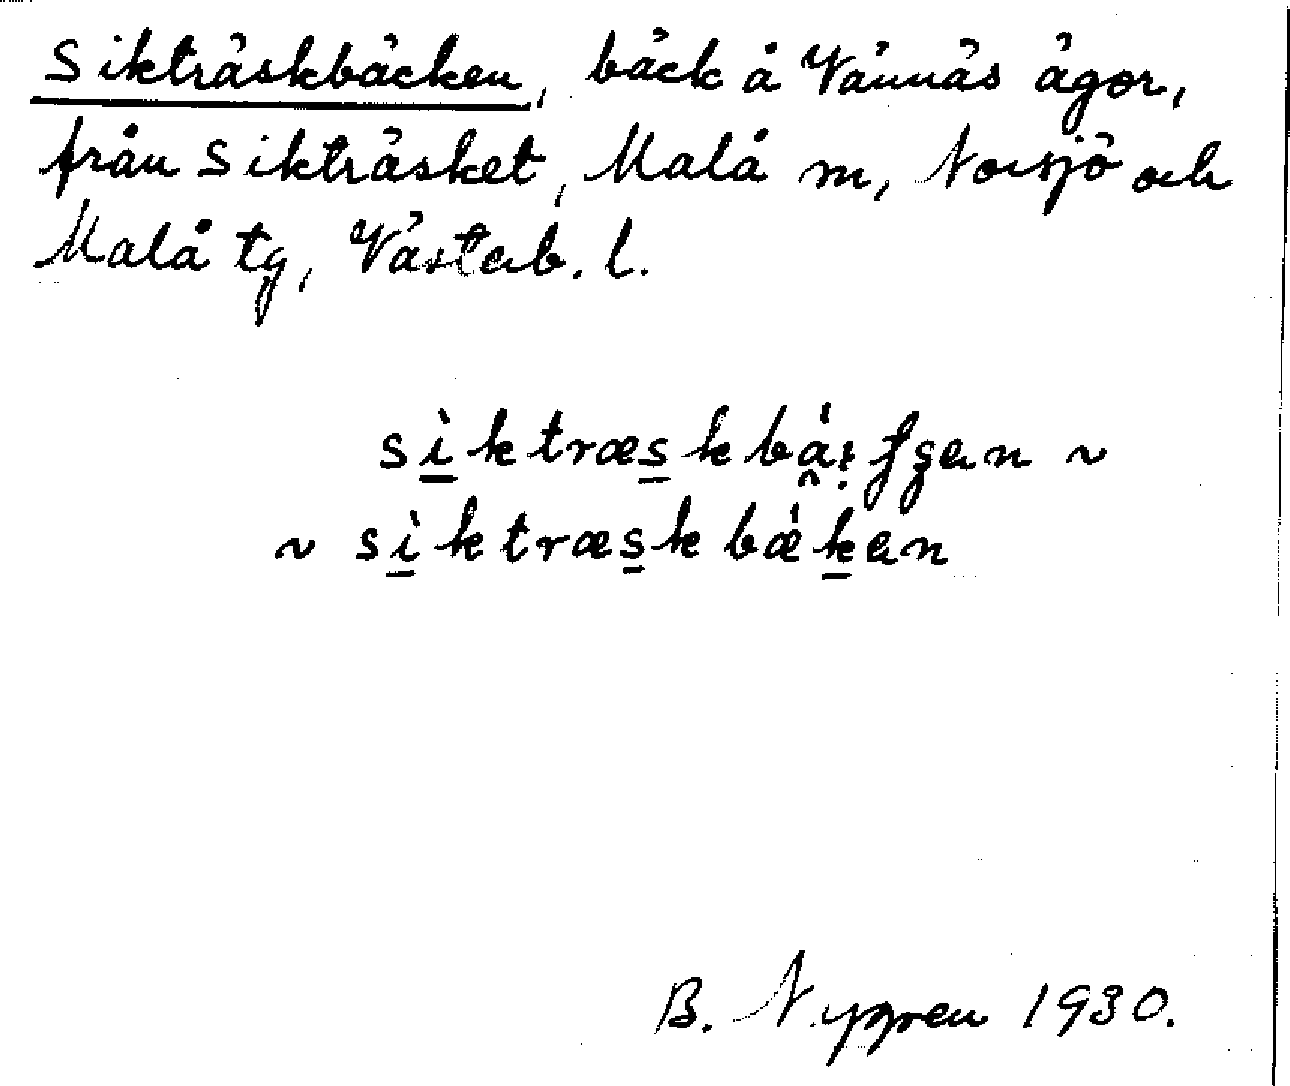 Sikträskbäcken, bäck å Vännäs ägor,
från Sikträsket, Malå m, Norsjö och
Malå tg, Västerb. l.
sìktræskb
~ sìktræskbǽken
B. Nygren 1930.